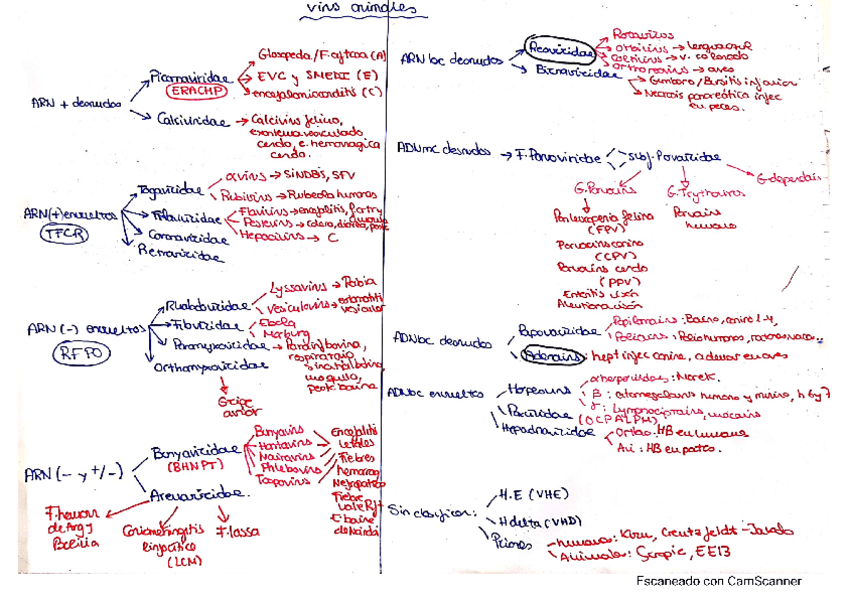 virus animales
ARN + desnudos
Picornaviridae
ERACHP
Glosopeda/F. aftosa (A)
EVC y SMEDI (E)
encefalomiocarditis (C)
Calciviridae
Calcivirus felino,
exantema vesiculado
cerdo, e. hemorragica
cerdo.
ARN(+) envueltos
TFCR
Togaviridae
αvirus → SINDBIS, SFV
Rubivirus → Rubeola humanos
Flaviviridae
Flavivirus → encefalitis,
Pestivirus →
Hepacivirus → C
Coronaviridae
Retroviridae
ARN (-) envueltos
RFPO
Rhabdoviridae
Lyssavirus → Rabia
Vesiculovirus → estomatitis
vesicular
Filoviridae
Ebola
Marburg
Paramyxoviridae
→ Parainf bovina,
respiratorio
sincitial bovino
moquillo,
peste bovina
Orthomyxoviridae
Gripe
aviar
ARN (- y +/-)
Bunyaviridae
(BHNPT)
Bunyavirus
Hantavirus
Nairovirus
Phlebovirus
Tospovirus
Encefalitis
Letales
Fiebres
hemorrag
Nefropatico
Fiebre
valle Rift
de Nairobi
Arenaviridae.
F. hemorr
de Arg y
Bolivia
Coriomeningitis
linfocitica
(LCM)
F. lassa
ARN bc desnudos
Reoviridae
Rotavirus
Orbivirus → lengua azul
Orthoreovirus → aves
Birnaviridae
Gumboro / Bursitis infecciosa
Necrosis pancreática infec
en peces.
ADNmc desnudos → F. Parvoviridae
subf. Parvoviridae
G. Parvovirus
Panleucopenia felina
(FPV)
Parvovirus canino
(CPV)
Parvovirus cerdo
(PPV)
Enteritis visón
Aleutiana visón
G. Erythrovirus
Parvovirus
humano
G. dependovirus
ADNbc desnudos
Papovaviridae
Papilomavirus: Bovino, canino 1-4,
Poliovirus:
Adenovirus: hept infec canine, adenov en aves
ADNbc envueltos
Herpesvirus
αherpesviridae: Marek.
β: citomegalovirus humano y murino, h 6 y 7
γ: Lymphocriptovirus,
Poxviridae
(OCPALPM)
Hepadnaviridae
Ortho: HB en humano
Avi: HB en patos.
Sin clasificar:
H.E (VHE)
H delta (VHD)
Priones
humanos: Kuru, Creutzfeldt-Jacob
Animales: Scrapie, EEB
Escaneado con CamScanner